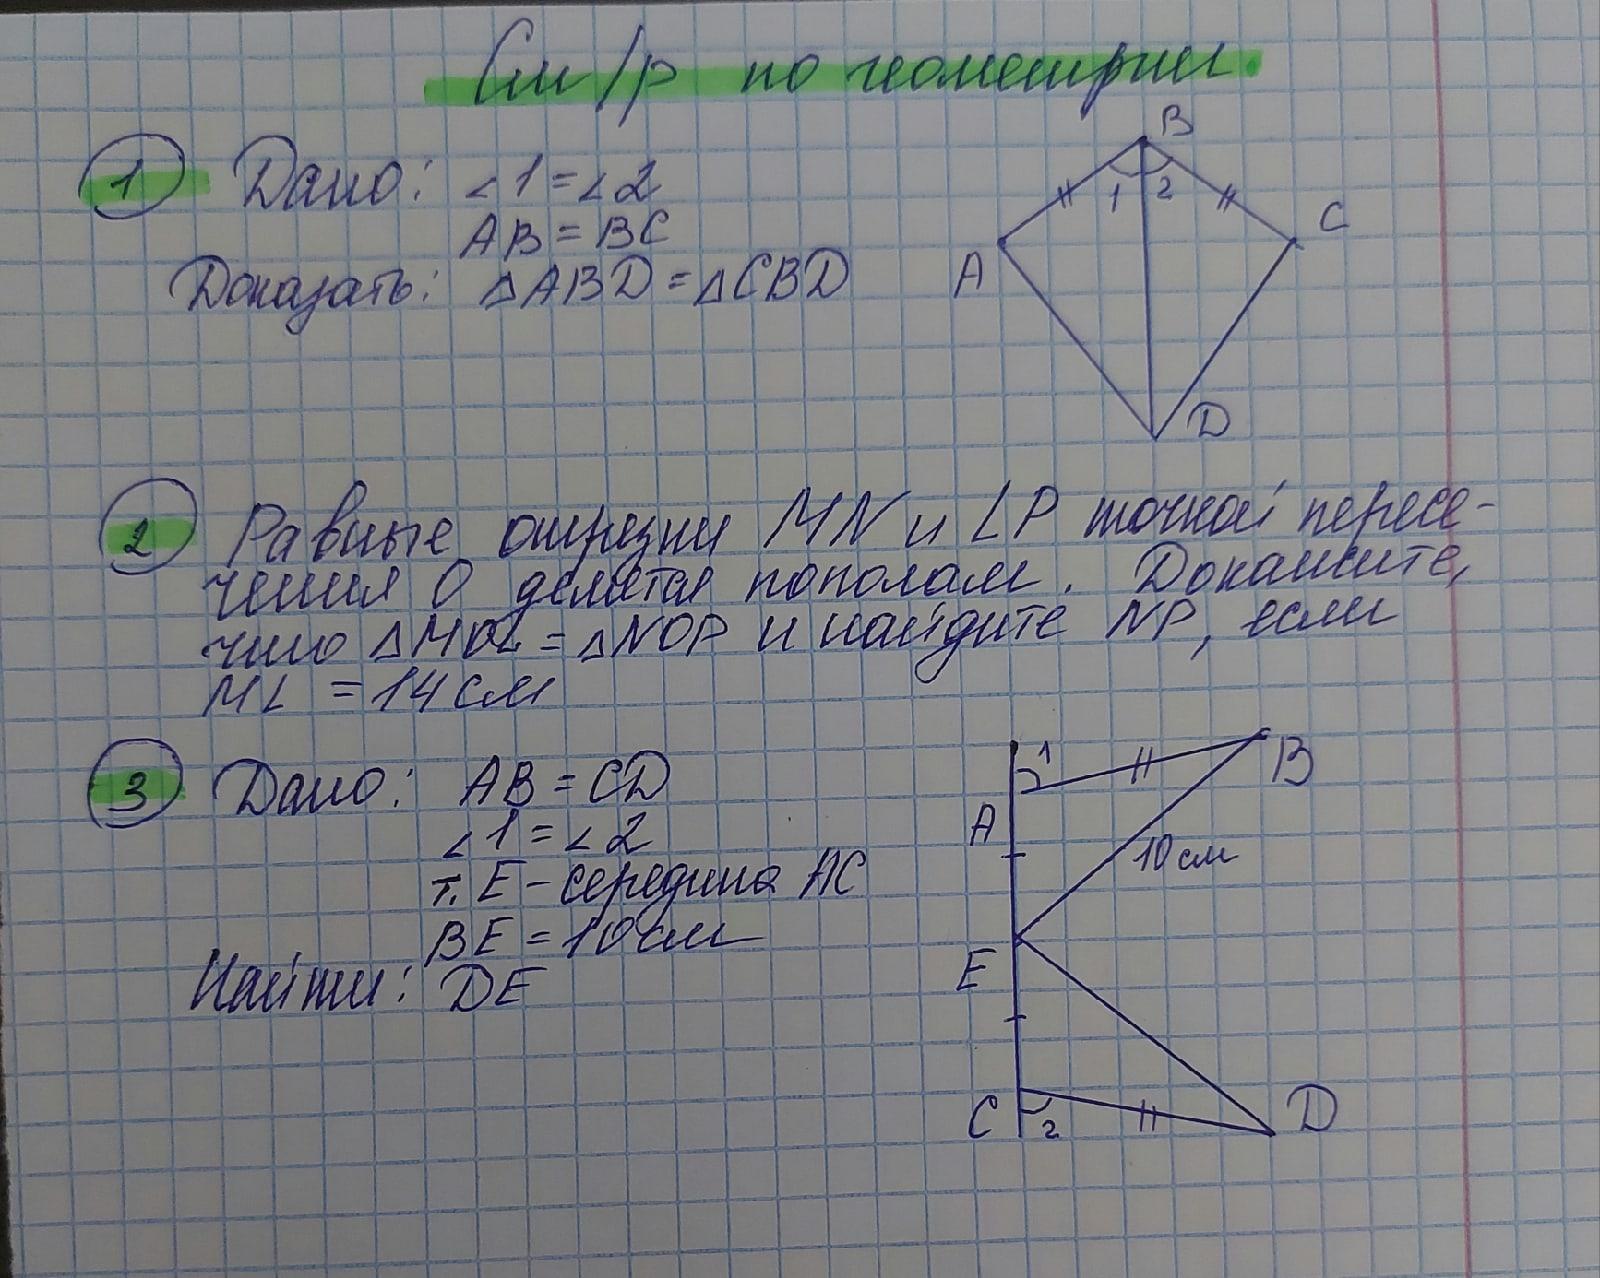 См/р по геометрии.
1 Дано: ∠1 = ∠2
AB = BC
Доказать: △ABD = △CBD
B
1 2
A
C
D
2 Равные отрезки MN и LP точкой пересе-
чения O делятся пополам. Докажите,
что △MOL = △NOP и найдите NP, если
ML = 14 см
3 Дано: AB = CD
∠1 = ∠2
т. E – середина AC
BE = 10 см
Найти: DE
1
B
A
10 см
E
C
2
D